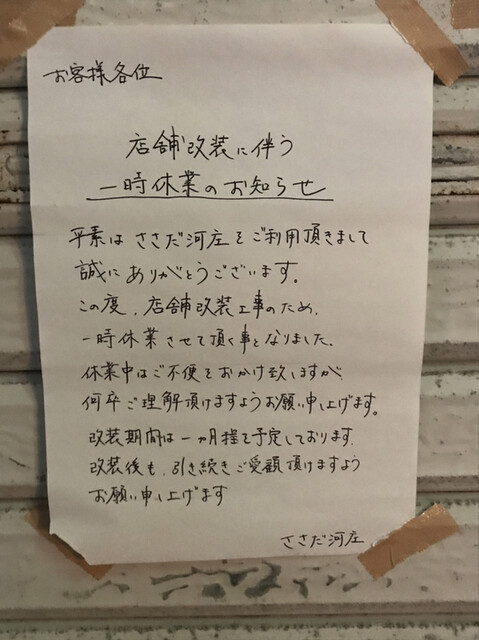 お客様各位
店舗改装に伴う
一時休業のお知らせ
平素は ささだ河庄をご利用頂きまして
誠に ありがとうございます。
この度、店舗改装工事のため、
一時休業させて頂く事となりました。
休業中はご不便をおかけ致しますが
何卒ご理解頂けますようお願い申し上げます。
改装期間は一ヵ月程を予定しております。
改装後も、引き続きご愛顧頂けますよう
お願い申し上げます
ささだ河庄